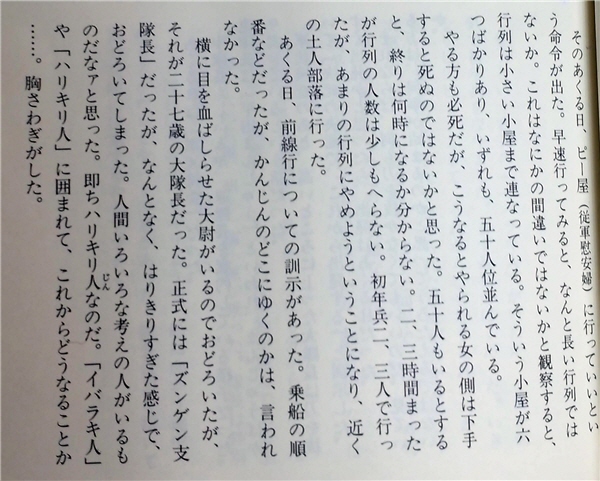 そのあくる日、ピー屋（従軍慰安婦）に行っていいとい
う命令が出た。早速行ってみると、なんと長い行列では
ないか。これはなにかの間違いではないかと観察すると、
行列は小さい小屋まで連なっている。そういう小屋が六
つばかりあり、いずれも、五十人位並んでいる。
やる方も必死だが、こうなるとやられる女の側は下手
すると死ぬのではないかと思った。五十人もいるとする
と、終りは何時になるか分からない。二、三時間まった
が行列の人数は少しもへらない。初年兵二、三人で行っ
たが、あまりの行列にやめようということになり、近く
の土人部落に行った。
あくる日、前線行についての訓示があった。乗船の順
番などだったが、かんじんのどこにゆくのかは、言われ
なかった。
横に目を血ばしらせた大尉がいるのでおどろいたが、
それが二十七歳の大隊長だった。正式には「ズンゲン支
隊長」だったが、なんとなく、はりきりすぎた感じで、
おどろいてしまった。人間いろいろな考えの人がいるも
のだなァと思った。即ちハリキリ人じんなのだ。「イバラキ人」
や「ハリキリ人」に囲まれて、これからどうなることか
……。胸さわぎがした。